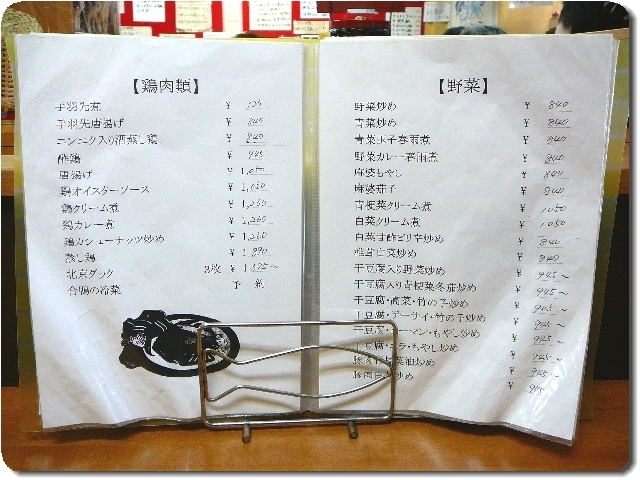 【鶏肉類】
手羽先煮 ¥
手羽先唐揚げ ¥ 840
ニンニク入り酒蒸し鶏 ¥ 840
酢鶏 ¥ 945
唐揚げ ¥ 1,050
鶏オイスターソース ¥
鶏クリーム煮 ¥ 1,260
鶏カレー煮 ¥ 1,260
鶏カシューナッツ炒め ¥ 1,260
蒸し鶏 ¥ 1,890
北京ダック 3枚 ¥ 1,575〜
合鴨の冷菜 予約
【野菜】
野菜炒め ¥ 840
青菜炒め ¥ 840
青菜玉子春雨煮 ¥ 840
野菜カレー春雨煮 ¥ 840
麻婆もやし ¥ 840
麻婆茄子 ¥ 840
青梗菜クリーム煮 ¥ 1050
白菜クリーム煮 ¥ 1050
白菜甘酢ピリ辛炒め ¥ 840
椎茸白菜炒め ¥ 840
干豆腐入り野菜炒め ¥ 945〜
干豆腐入り青梗菜冬茹炒め ¥ 945〜
干豆腐・高菜・竹の子炒め ¥ 945〜
干豆腐・ザーサイ・竹の子炒め ¥ 945〜
干豆腐・ピーマン・もやし炒め ¥ 945〜
干豆腐・ニラ・もやし炒め ¥ 945〜
豚肉 炒め ¥ 945〜
豚肉 炒め ¥ 945